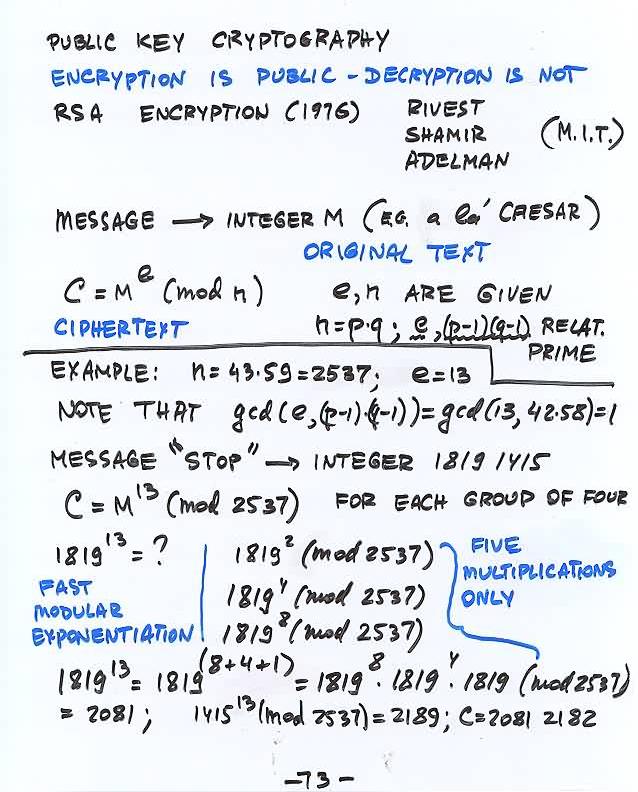 PUBLIC KEY CRYPTOGRAPHY
ENCRYPTION IS PUBLIC - DECRYPTION IS NOT
RSA ENCRYPTION (1976) RIVEST
SHAMIR (M.I.T.)
ADELMAN
MESSAGE → INTEGER M (E.G. a la' CAESAR)
ORIGINAL TEXT
C = M^e (mod n) e, n ARE GIVEN
CIPHERTEXT n = p·q ; e, (p-1)(q-1) RELAT.
PRIME
EXAMPLE: n = 43·59 = 2537; e = 13
NOTE THAT gcd(e, (p-1)·(q-1)) = gcd(13, 42·58) = 1
MESSAGE "STOP" → INTEGER 1819 1415
C = M^13 (mod 2537) FOR EACH GROUP OF FOUR
1819^13 = ? 1819^2 (mod 2537) FIVE
MULTIPLICATIONS
FAST 1819^4 (mod 2537) ONLY
MODULAR
EXPONENTIATION 1819^8 (mod 2537)
1819^13 = 1819^(8+4+1) = 1819^8 · 1819^4 · 1819 (mod 2537)
= 2081 ; 1415^13 (mod 2537) = 2189 ; C = 2081 2182
-73-